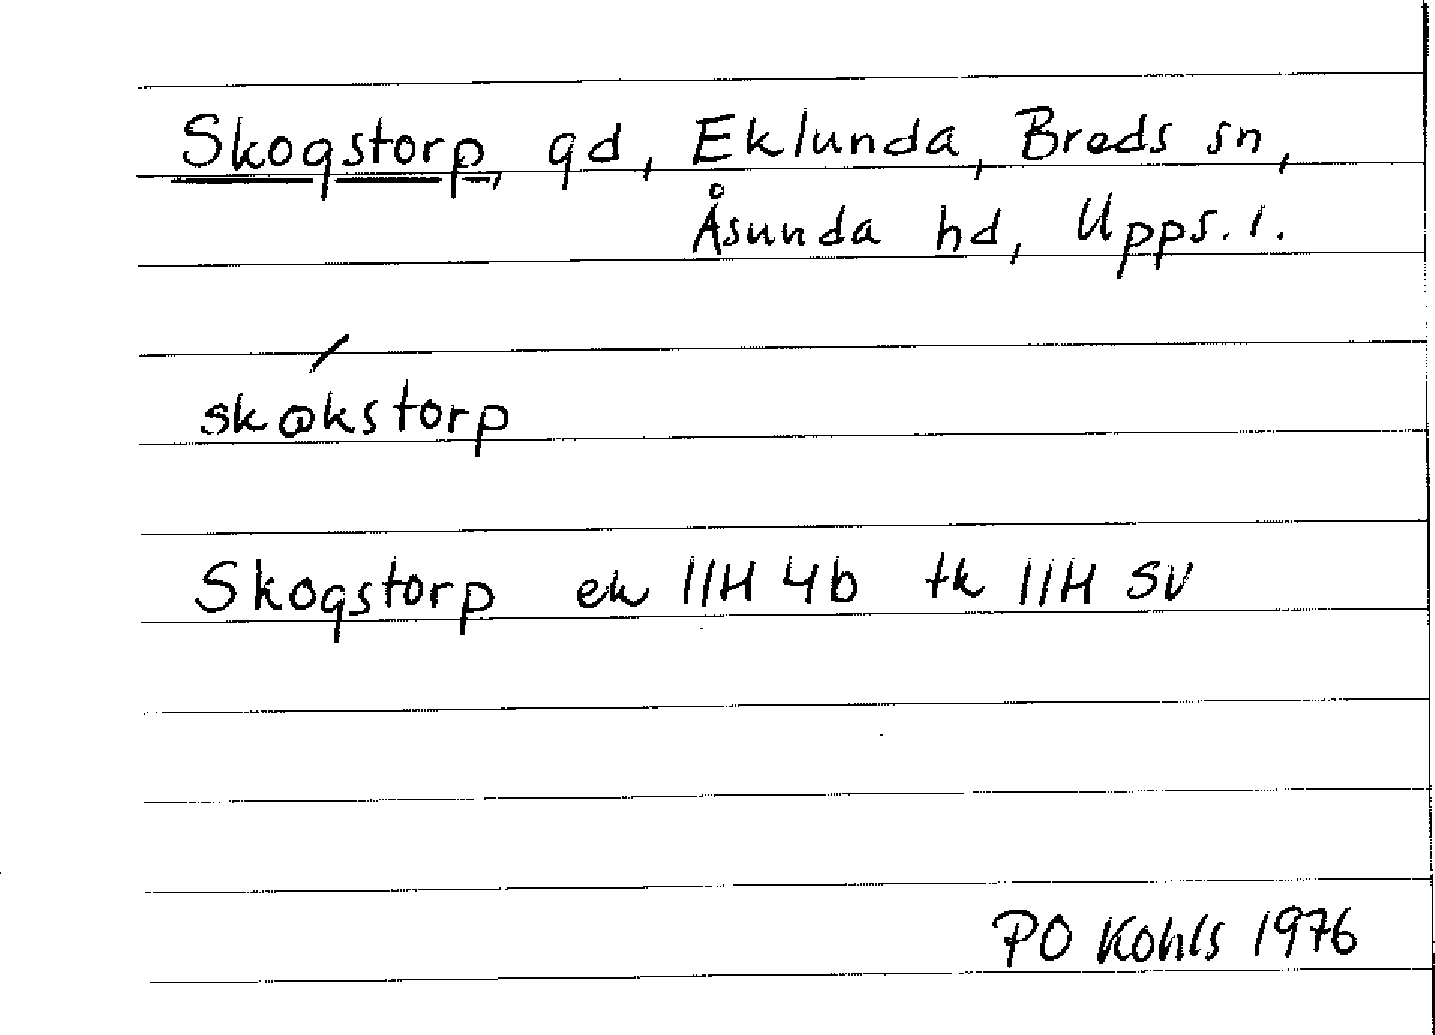 Skogstorp, gd, Eklunda, Breds sn,
Åsunda hd, Upps. l.
skωkstorp
Skogstorp ek 11H 4b tk 11H SV
PO Kohls 1976